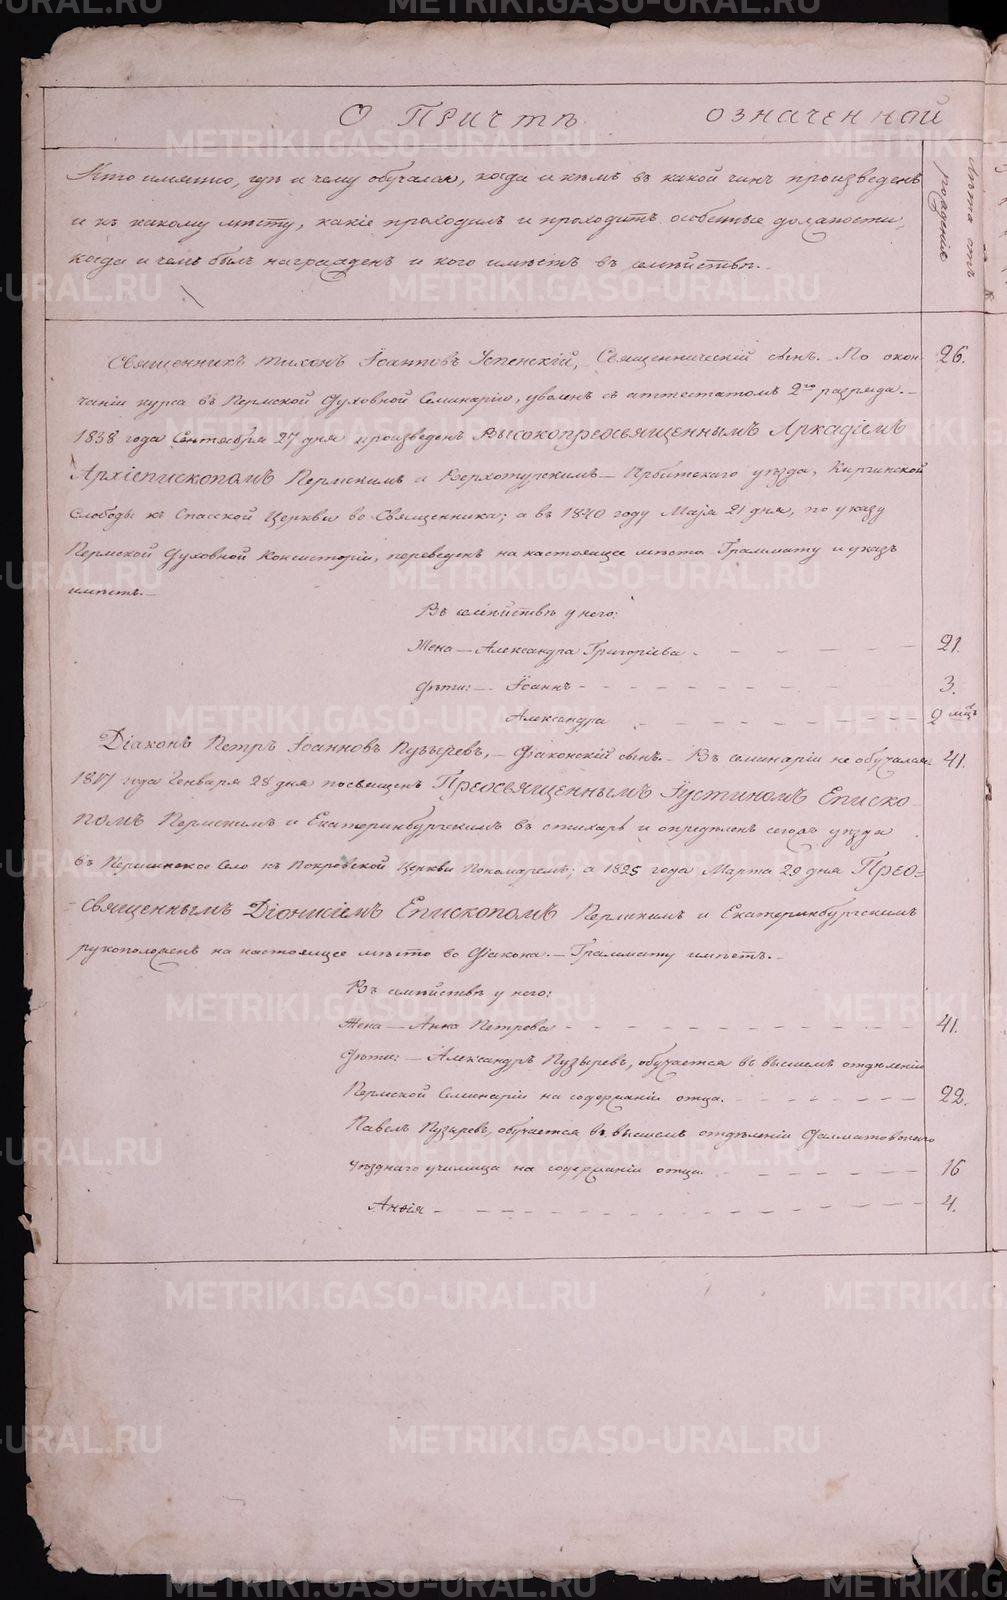 О Причтѣ означенной
Кто имянно, гдѣ и чему обучался, когда и кѣмъ въ какой чинъ произведенъ
и къ какому мѣсту, какіе проходилъ и проходитъ особенные должности,
когда и чемъ былъ награжденъ и кого имѣетъ въ семѣйствѣ.
Лѣта отъ
рожденія
Священникъ Тихонъ Іоанновъ Успенскій, Священническій сынъ. По окон- 26.
чаніи курса въ Пермской Духовной Семинаріи, уволенъ съ аттестатомъ 2го разряда.
1838 года Сентября 27 дня произведенъ Высокопреосвященнымъ Аркадіемъ
Архіепископомъ Пермскимъ и Верхотурскимъ Ирбитскаго уѣзда, Киргинской
Слободы къ Спасской Церкви во Священника; а въ 1840 году Маія 21 дня, по указу
Пермской Духовной Консисторіи, переведенъ на настоящее мѣсто. Граммату и указъ
имѣетъ.
Въ семѣйствѣ у него:
Жена — Александра Григоріева 21.
Дѣти: — Іоаннъ 3.
Александра 2 мцъ
Діаконъ Петръ Іоанновъ Пузыревъ, Діаконскій сынъ. Въ семинаріи не обучался. 41.
1817 года Генваря 28 дня посвященъ Преосвященнымъ Іустиномъ Еписко-
помъ Пермскимъ и Екатеринбургскимъ въ стихарь и опредѣленъ сегожъ уѣзда
въ Першинское Село къ Покровской Церкви Пономаремъ; а 1825 года Марта 29 дня Прео-
священнымъ Діонисіемъ Епископомъ Пермскимъ и Екатеринбургскимъ
рукоположенъ на настоящее мѣсто во Діакона. — Граммату имѣетъ.
Въ семѣйствѣ у него:
Жена — Анна Петрова 41.
Дѣти: — Александръ Пузыревъ, обучается въ высшемъ отдѣленіи
Пермской Семинаріи на содержаніи отца. 22.
Павелъ Пузыревъ, обучается въ высшемъ отдѣленіи Далматовскаго
Уѣзднаго училища на содержаніи отца. 16
Анѳія 4.
METRIKI.GASO-URAL.RU